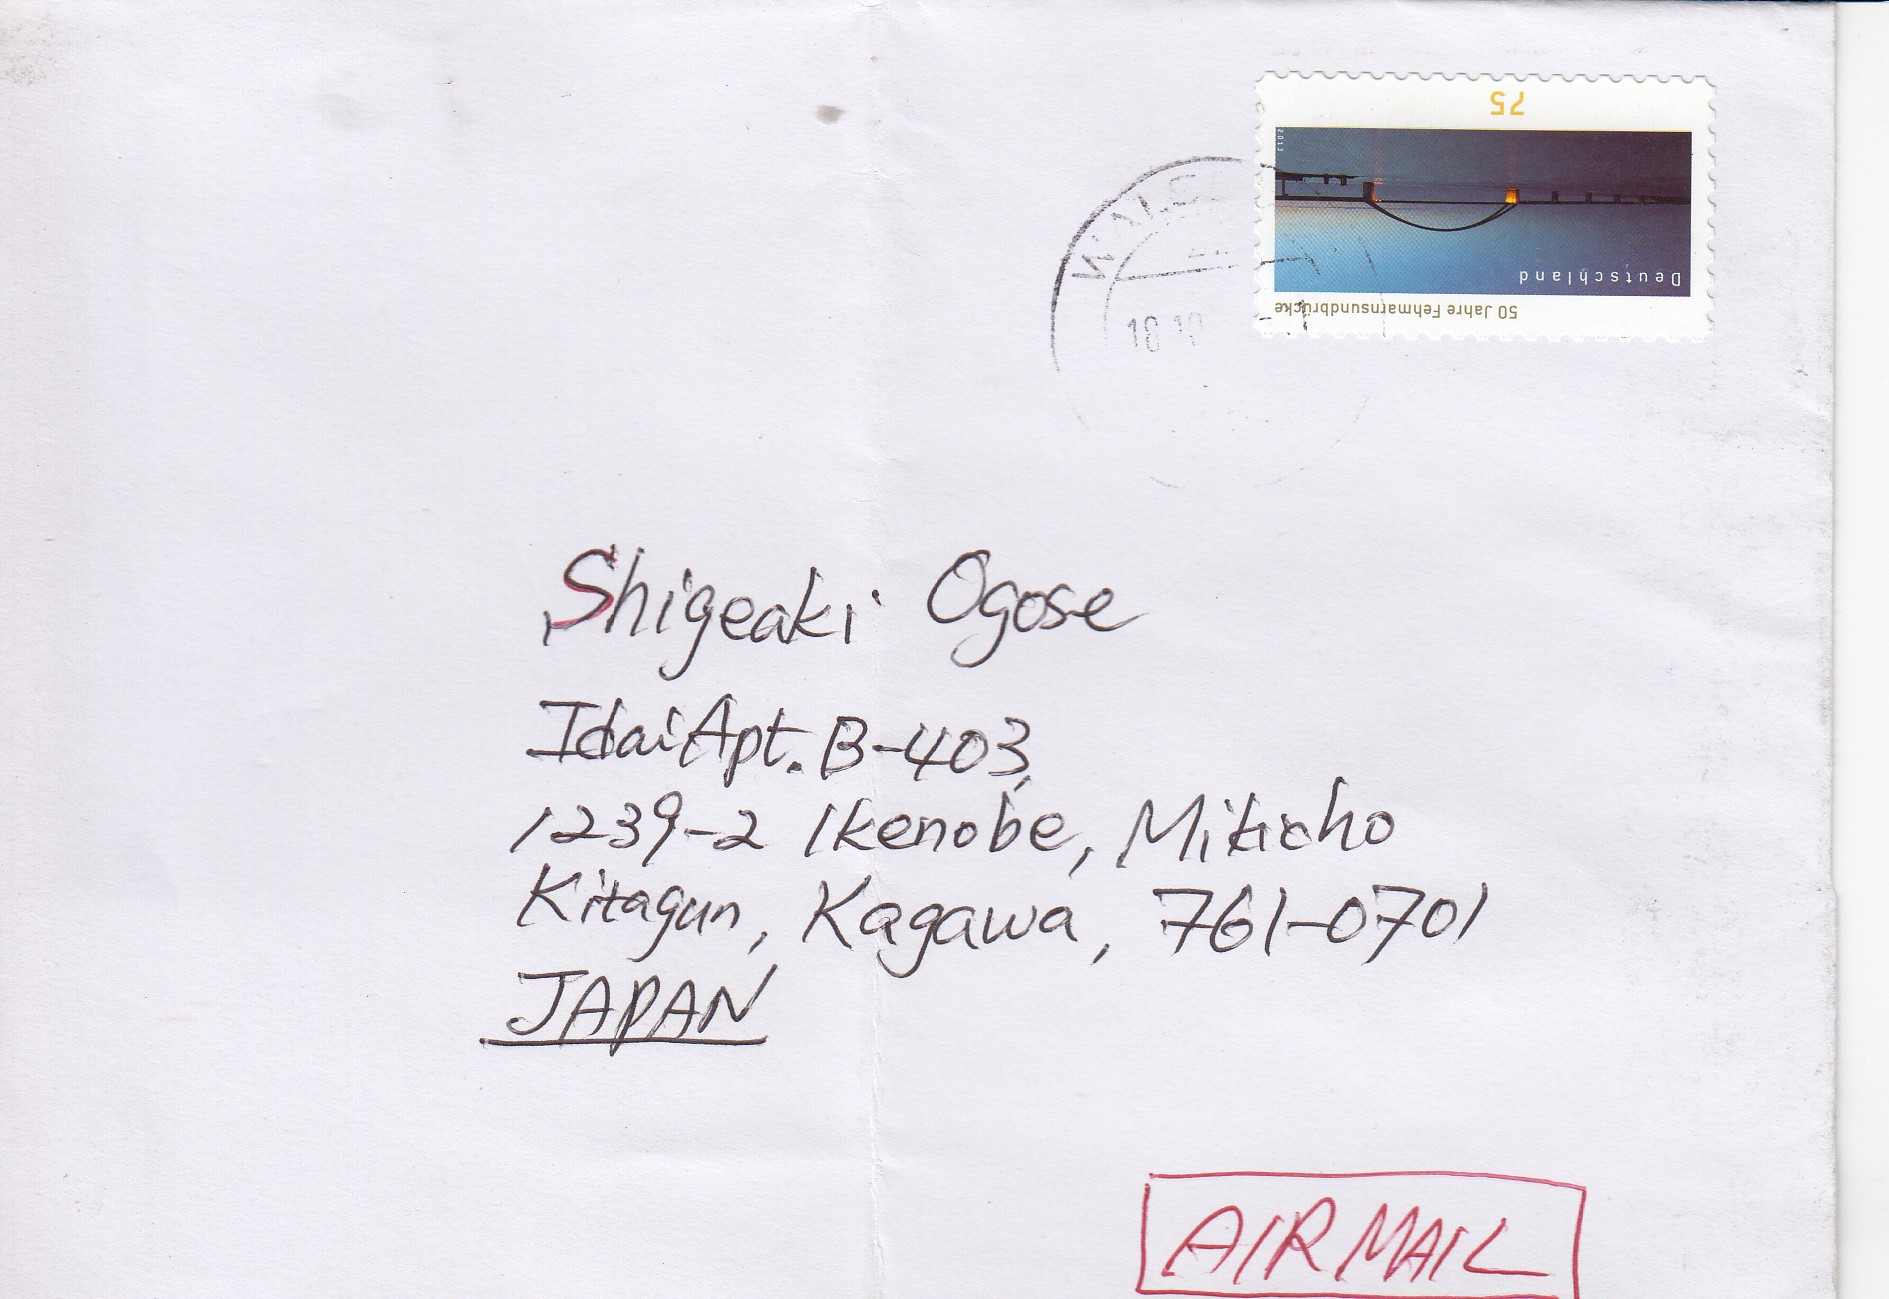 75
2013
Deutschland
50 Jahre Fehmarnsundbrücke
Shigeaki Ogose
Idai Apt. B-403,
1239-2 Ikenobe, Mikicho
Kitagun, Kagawa, 761-0701
JAPAN
AIR MAIL